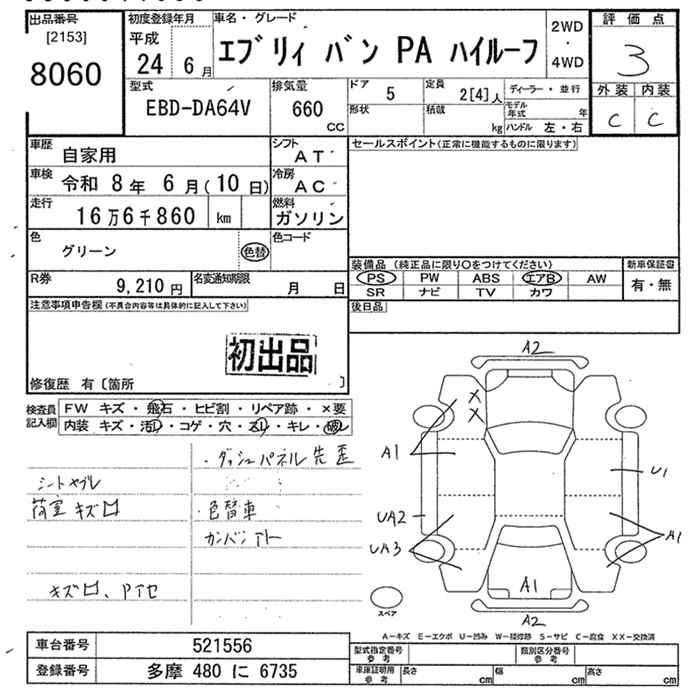 出品番号
[2153]
8060
初度登録年月
平成
24 6月
車名・グレード
エブリィ バン PA ハイルーフ
2WD
・
4WD
評価点
3
外装 内装
C C
型式
EBD-DA64V
排気量
660
CC
ドア
5
形状
定員
2[4]人
積載
kg
ディーラー・並行
モデル年式 年
ハンドル 左・右
車歴
自家用
シフト
AT
車検
令和 8年 6月(10日)
冷房
AC
走行
16万6千860 km
燃料
ガソリン
色
グリーン
色替
色コード
R券
9,210円
名変通知期限
月 日
セールスポイント(正常に機能するものに限ります)
装備品 (純正品に限り○をつけてください)
PS PW ABS エアB AW
SR ナビ TV カワ
新車保証書
有・無
後日品
注意事項申告欄(不具合内容等は具体的に記入して下さい)
初出品
修復歴 有〔箇所 〕
検査員記入欄
FW キズ・飛石・ヒビ割・リペア跡・×要
内装 キズ・汚レ・コゲ・穴・スレ・キレ・破レ
・ダッシュパネル先歪
シートヤブレ
荷室キズ
・色替車
カンバンアト
A2
X
X
A1
U1
UA2
UA3
A1
A1
A2
スペア
A－キズ E－エクボ U－凹み W－補修跡 S－サビ C－腐食 XX－交換済
車台番号 521556
登録番号 多摩 480 に 6735
型式指定番号
参考
類別区分番号
参考
車庫証明用
参考
長さ cm
幅 cm
高さ cm